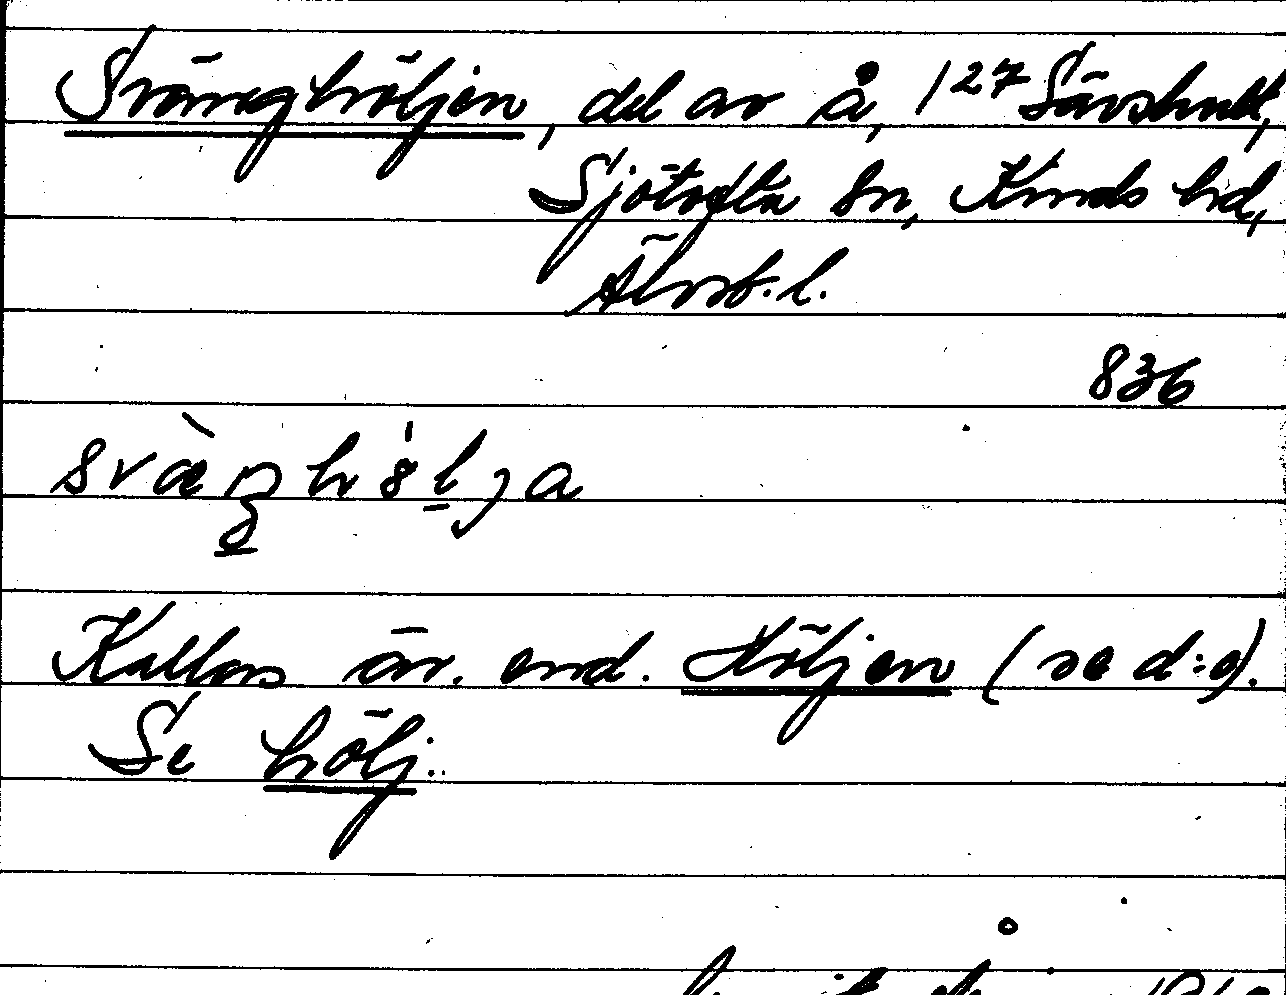 Svänghöljen, del av å, 1²⁷ Sävshult,
Sjötofta sn, Kinds hd,
Älvsb. l.
836
Kallas äv. end. Höljen (se d:o).
Se hölj.